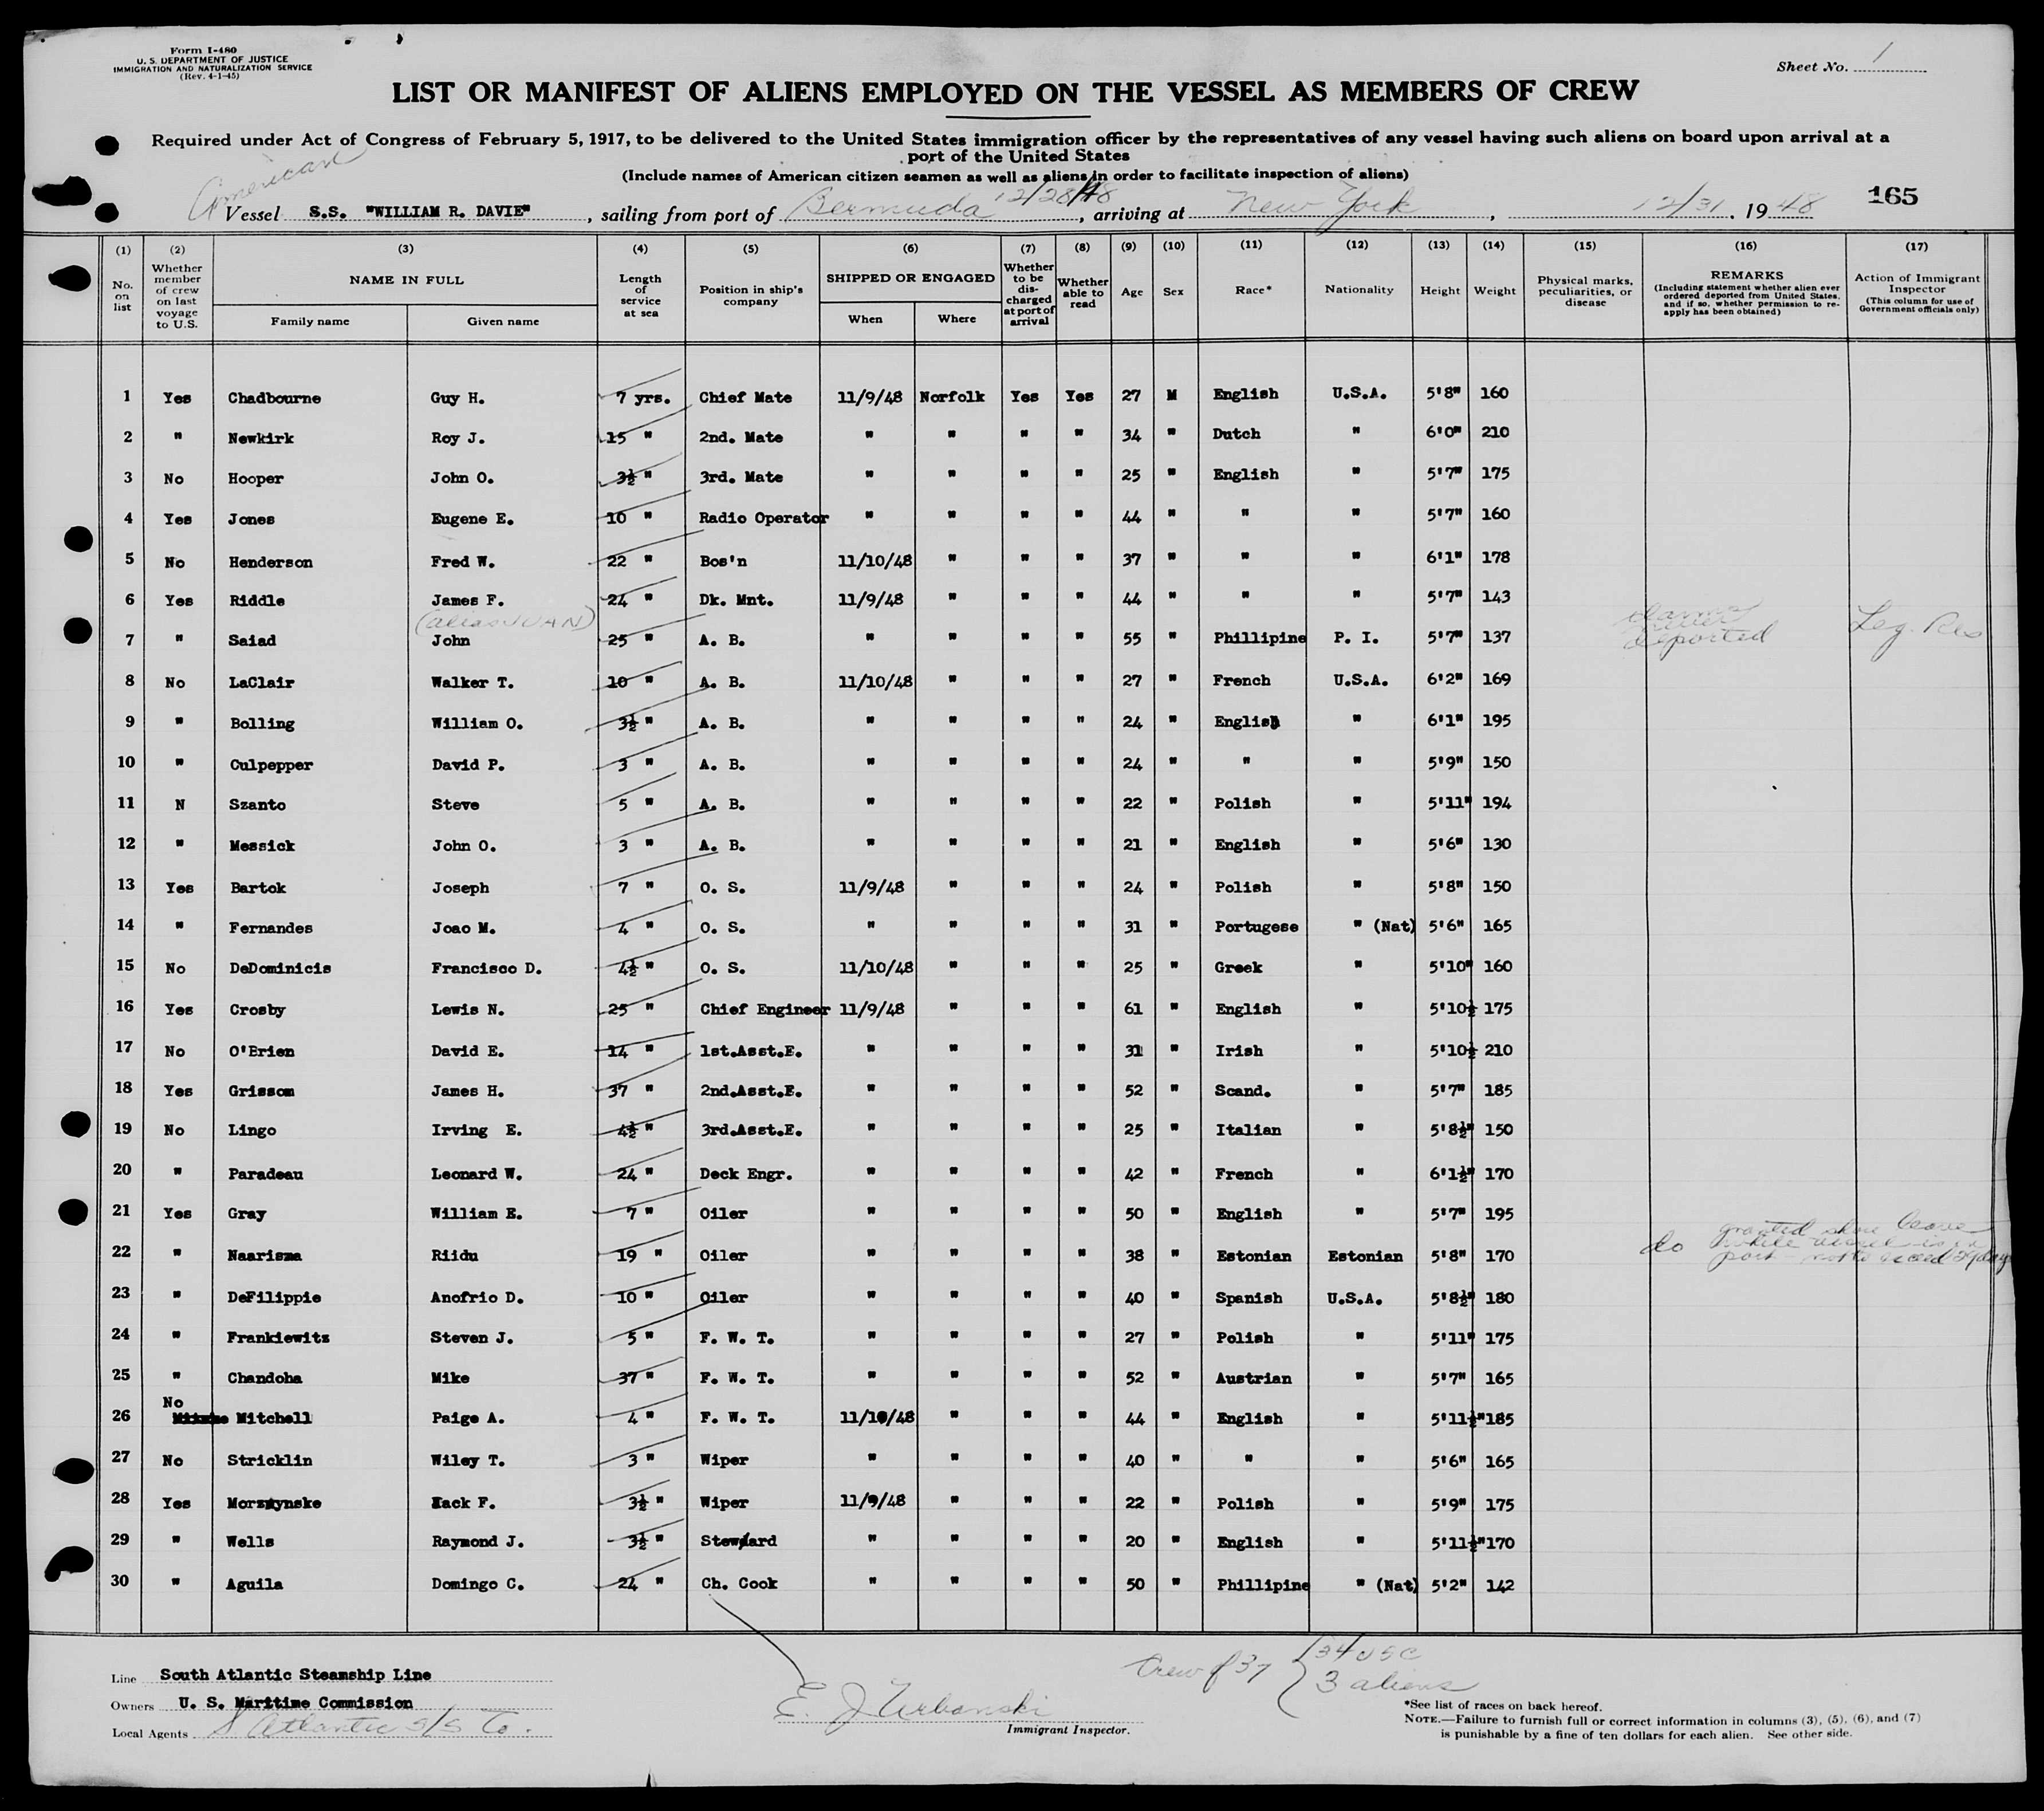 Form I-480
U. S. DEPARTMENT OF JUSTICE
IMMIGRATION AND NATURALIZATION SERVICE
(Rev. 4-1-45)
Sheet No. 1
LIST OR MANIFEST OF ALIENS EMPLOYED ON THE VESSEL AS MEMBERS OF CREW
Required under Act of Congress of February 5, 1917, to be delivered to the United States immigration officer by the representatives of any vessel having such aliens on board upon arrival at a
port of the United States
(Include names of American citizen seamen as well as aliens in order to facilitate inspection of aliens)
American
Vessel S.S. "WILLIAM R. DAVIE", sailing from port of Bermuda 12/28/48, arriving at New York, 12/31, 1948 165
(1) (2) (3) (4) (5) (6) (7) (8) (9) (10) (11) (12) (13) (14) (15) (16) (17)
No. on list
Whether member of crew on last voyage to U.S.
NAME IN FULL
Family name Given name
Length of service at sea
Position in ship's company
SHIPPED OR ENGAGED
When Where
Whether to be discharged at port of arrival
Whether able to read
Age
Sex
Race*
Nationality
Height
Weight
Physical marks, peculiarities, or disease
REMARKS
(Including statement whether alien ever ordered deported from United States, and if so, whether permission to re-apply has been obtained)
Action of Immigrant Inspector
(This column for use of Government officials only)
1 Yes Chadbourne Guy H. 7 yrs. Chief Mate 11/9/48 Norfolk Yes Yes 27 M English U.S.A. 5'8" 160
2 " Newkirk Roy J. 15 " 2nd. Mate " " " " 34 " Dutch " 6'0" 210
3 No Hooper John O. 3½ " 3rd. Mate " " " " 25 " English " 5'7" 175
4 Yes Jones Eugene E. 10 " Radio Operator " " " " 44 " " " 5'7" 160
5 No Henderson Fred W. 22 " Bos'n 11/10/48 " " " 37 " " " 6'1" 178
6 Yes Riddle James F. 24 " Dk. Mnt. 11/9/48 " " " 44 " " " 5'7" 143
(alias JUAN)
7 " Saiad John 25 " A. B. " " " " 55 " Phillipine P. I. 5'7" 137 deported Leg. Res
8 No LaClair Walker T. 10 " A. B. 11/10/48 " " " 27 " French U.S.A. 6'2" 169
9 " Bolling William O. 3½ " A. B. " " " " 24 " English " 6'1" 195
10 " Culpepper David P. 3 " A. B. " " " " 24 " " " 5'9" 150
11 N Szanto Steve 5 " A. B. " " " " 22 " Polish " 5'11" 194
12 " Messick John O. 3 " A. B. " " " " 21 " English " 5'6" 130
13 Yes Bartok Joseph 7 " O. S. 11/9/48 " " " 24 " Polish " 5'8" 150
14 " Fernandes Joao M. 4 " O. S. " " " " 31 " Portugese " (Nat) 5'6" 165
15 No DeDominicis Francisco D. 4½ " O. S. 11/10/48 " " " 25 " Greek " 5'10" 160
16 Yes Crosby Lewis N. 25 " Chief Engineer 11/9/48 " " " 61 " English " 5'10½ 175
17 No O'Brien David E. 14 " 1st.Asst.E. " " " " 31 " Irish " 5'10½ 210
18 Yes Grissom James H. 37 " 2nd.Asst.E. " " " " 52 " Scand. " 5'7" 185
19 No Lingo Irving E. 4½ " 3rd.Asst.E. " " " " 25 " Italian " 5'8½" 150
20 " Paradeau Leonard W. 24 " Deck Engr. " " " " 42 " French " 6'1½" 170
21 Yes Gray William E. 7 " Oiler " " " " 50 " English " 5'7" 195
22 " Naarisma Riidu 19 " Oiler " " " " 38 " Estonian Estonian 5'8" 170 do granted shore leave while vessel is in port not to exceed 29 days
23 " DeFilippie Anofrio D. 10 " Oiler " " " " 40 " Spanish U.S.A. 5'8½" 180
24 " Frankiewitz Steven J. 5 " F. W. T. " " " " 27 " Polish " 5'11" 175
25 " Chandoha Mike 37 " F. W. T. " " " " 52 " Austrian " 5'7" 165
26 No Mitchell Paige A. 4 " F. W. T. 11/10/48 " " " 44 " English " 5'11½" 185
27 No Stricklin Wiley T. 3 " Wiper " " " " 40 " " " 5'6" 165
28 Yes Morzzynske Zack F. 3½ " Wiper 11/9/48 " " " 22 " Polish " 5'9" 175
29 " Wells Raymond J. 3½ " Steward " " " " 20 " English " 5'11½" 170
30 " Aguila Domingo C. 24 " Ch. Cook " " " " 50 " Phillipine " (Nat) 5'2" 142
Line South Atlantic Steamship Line
Owners U. S. Maritime Commission
Local Agents S Atlantic S/S Co.
E. J Urbanski
Immigrant Inspector.
Crew of 37 { 34 USC
3 aliens
*See list of races on back hereof.
NOTE.—Failure to furnish full or correct information in columns (3), (5), (6), and (7)
is punishable by a fine of ten dollars for each alien. See other side.